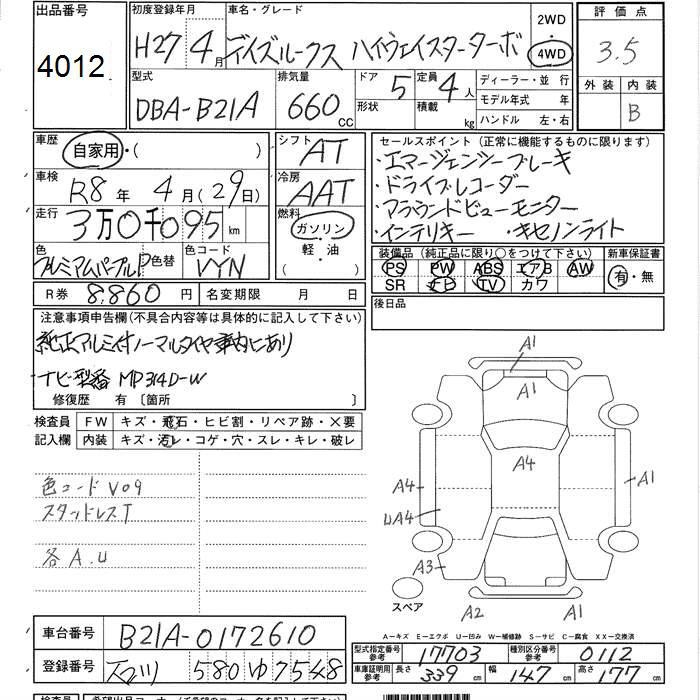 出品番号 4012
初度登録年月 H27年4月
車名・グレード デイズルークス ハイウェイスターターボ
2WD
4WD
評価点 3.5
外装 内装 B
型式 DBA-B21A
排気量 660cc
ドア 5
形状
定員 4人
積載 kg
ディーラー・並行
モデル年式 年
ハンドル 左・右
車歴 自家用・( )
シフト AT
車検 R8年4月(29日)
冷房 AAT
走行 3万0千095km
燃料 ガソリン
軽・油
( )
色 プレミアムパープルP 色替
色コード VYN
セールスポイント(正常に機能するものに限ります)
・エマージェンシーブレーキ
・ドライブレコーダー
・アラウンドビューモニター
・インテリキー ・キセノンライト
装備品(純正品に限り○をつけて下さい) 新車保証書
PS PW ABS エアB AW 有・無
SR ナビ TV カワ
R券 8,860円 名変期限 月 日
後日品
注意事項申告欄(不具合内容等は具体的に記入して下さい)
純正アルミ付ノーマルタイヤ車内にあり
ナビ型番 MP314D-W
修復歴 有〔箇所 〕
検査員 FW キズ・飛石・ヒビ割・リペア跡・×要
記入欄 内装 キズ・汚レ・コゲ・穴・スレ・キレ・破レ
色コードV09
スタッドレスT
各A.U
A1
A1
A4
A4
A1
UA4
A3
スペア
A2
A1
A−キズ E−エクボ U−凹み W−補修跡 S−サビ C−腐食 XX−交換済
車台番号 B21A-0172610
登録番号 石川 580 ゆ 7548
型式指定番号 参考 17703 種別区分番号 参考 0112
車庫証明用 参考 長さ 339cm 幅 147cm 高さ 177cm